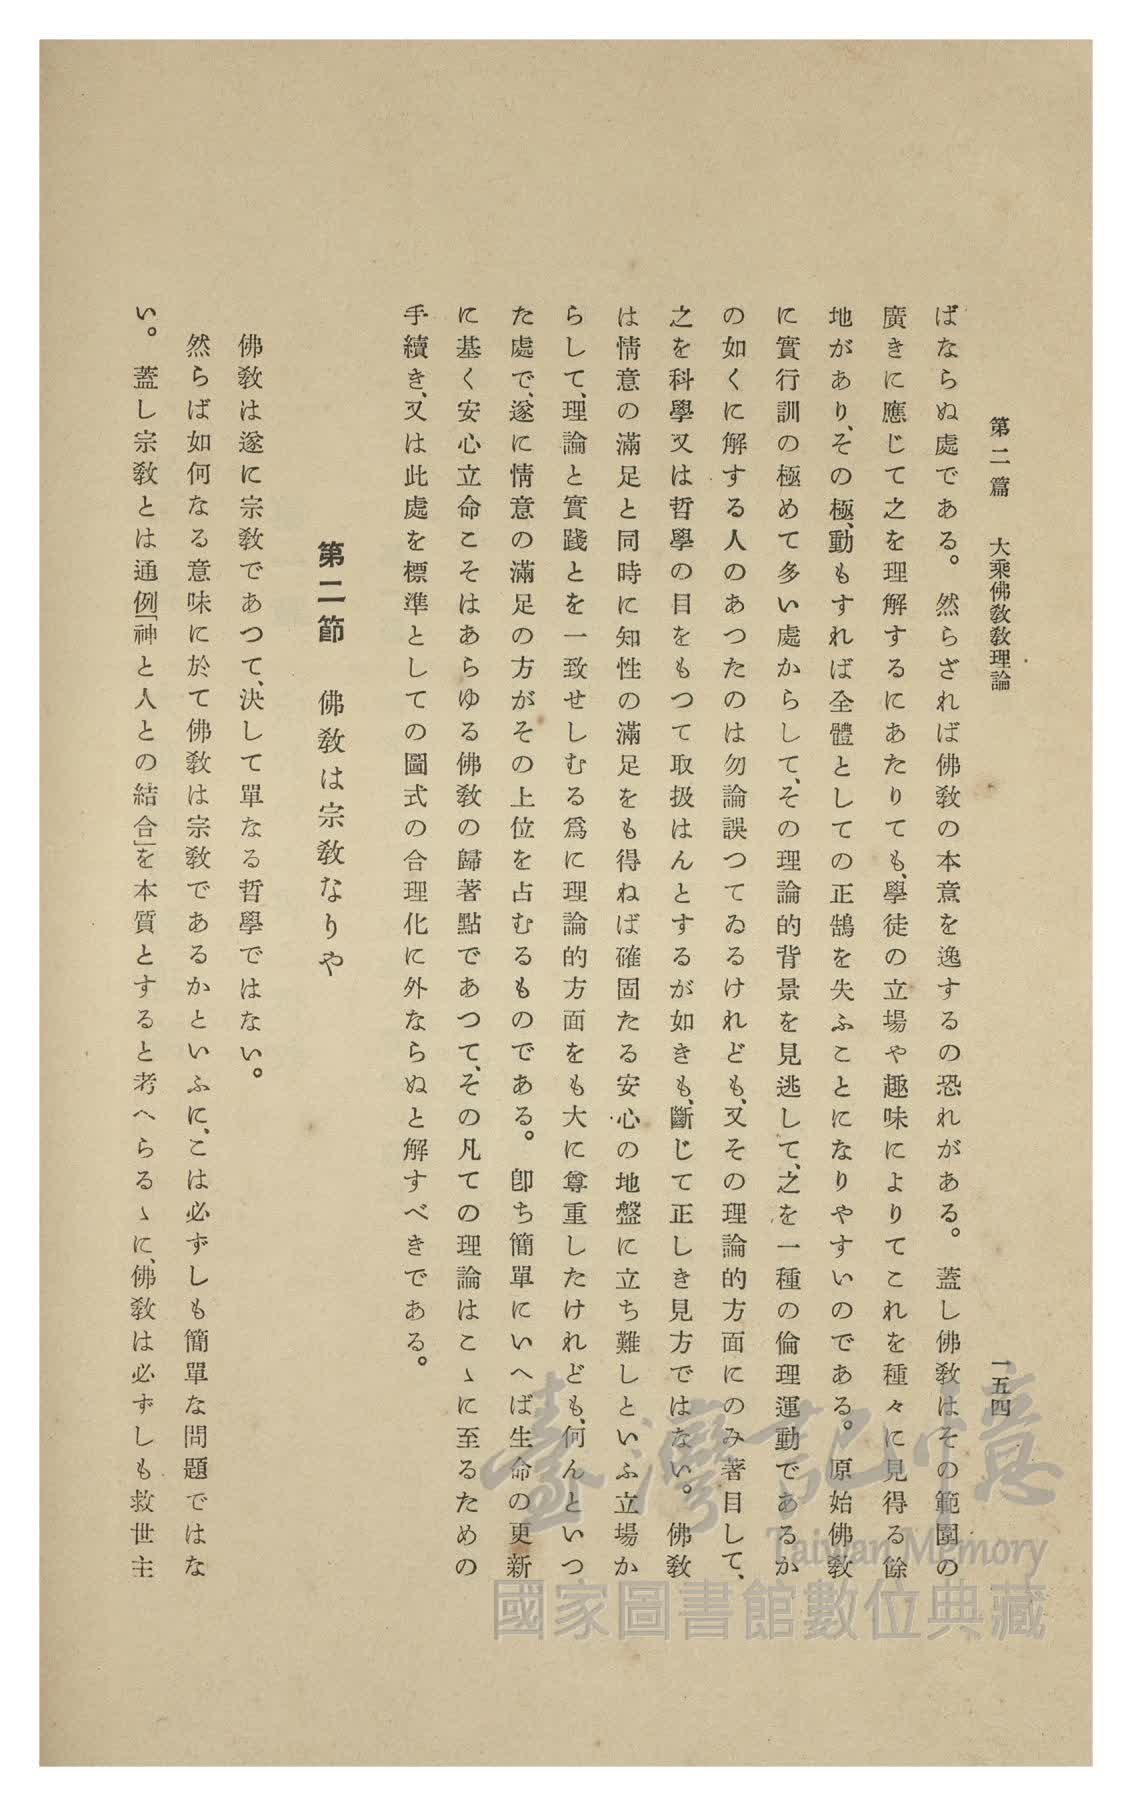 第二篇　大乘佛敎敎理論
一五四
ばならぬ處である。然らざれば佛敎の本意を逸するの恐れがある。蓋し佛敎はその範圍の
廣きに應じて之を理解するにあたりても、學徒の立場や趣味によりてこれを種々に見得る餘
地があり、その極、動もすれば全體としての正鵠を失ふことになりやすいのである。原始佛敎
に實行訓の極めて多い處からして、その理論的背景を見逃して、之を一種の倫理運動であるか
の如くに解する人のあつたのは勿論誤つてゐるけれども、又その理論的方面にのみ著目して、
之を科學又は哲學の目をもつて取扱はんとするが如きも、斷じて正しき見方ではない。佛敎
は情意の滿足と同時に知性の滿足をも得ねば確固たる安心の地盤に立ち難しといふ立場か
らして、理論と實踐とを一致せしむる爲に理論的方面をも大に尊重したけれども、何んといつ
た處で、遂に情意の滿足の方がその上位を占むるものである。卽ち簡單にいへば生命の更新
に基く安心立命こそはあらゆる佛敎の歸著點であつて、その凡ての理論はこゝに至るための
手續き、又は此處を標準としての圖式の合理化に外ならぬと解すべきである。
第二節　佛敎は宗敎なりや
佛敎は遂に宗敎であつて、決して單なる哲學ではない。
然らば如何なる意味に於て佛敎は宗敎であるかといふに、こは必ずしも簡單な問題ではな
い。蓋し宗敎とは通例「神と人との結合」を本質とすると考へらるゝに、佛敎は必ずしも救世主
臺灣記憶
Taiwan Memory
國家圖書館數位典藏